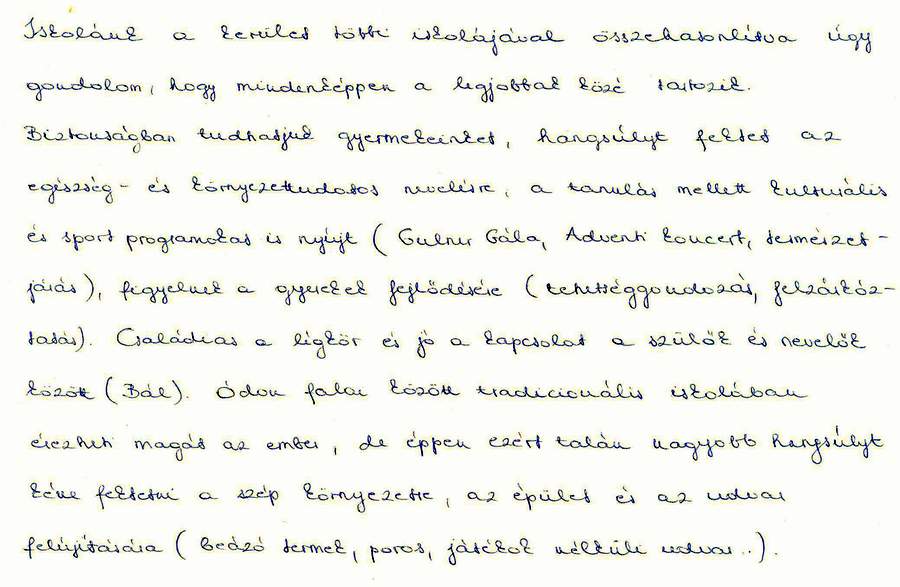 Iskolánk a kerület többi iskolájával összehasonlítva úgy
gondolom, hogy mindenképpen a legjobbak közé tartozik.
Biztonságban tudhatjuk gyermekeinket, hangsúlyt fektet az
egészség- és környezettudatos nevelésre, a tanulás mellett kulturális
és sport programokat is nyújt (Gulner Gála, Adventi koncert, természet-
járás), figyelnek a gyerekek fejlődésére (tehetséggondozás, felzárkóz-
tatás). Családias a légkör és jó a kapcsolat a szülők és nevelők
között (Bál). Ódon falai között tradicionális iskolában
érezheti magát az ember, de éppen ezért talán nagyobb hangsúlyt
kéne fektetni a szép környezetre, az épület és az udvar
felújítására (beázó termek, poros, játékok nélküli udvar..).